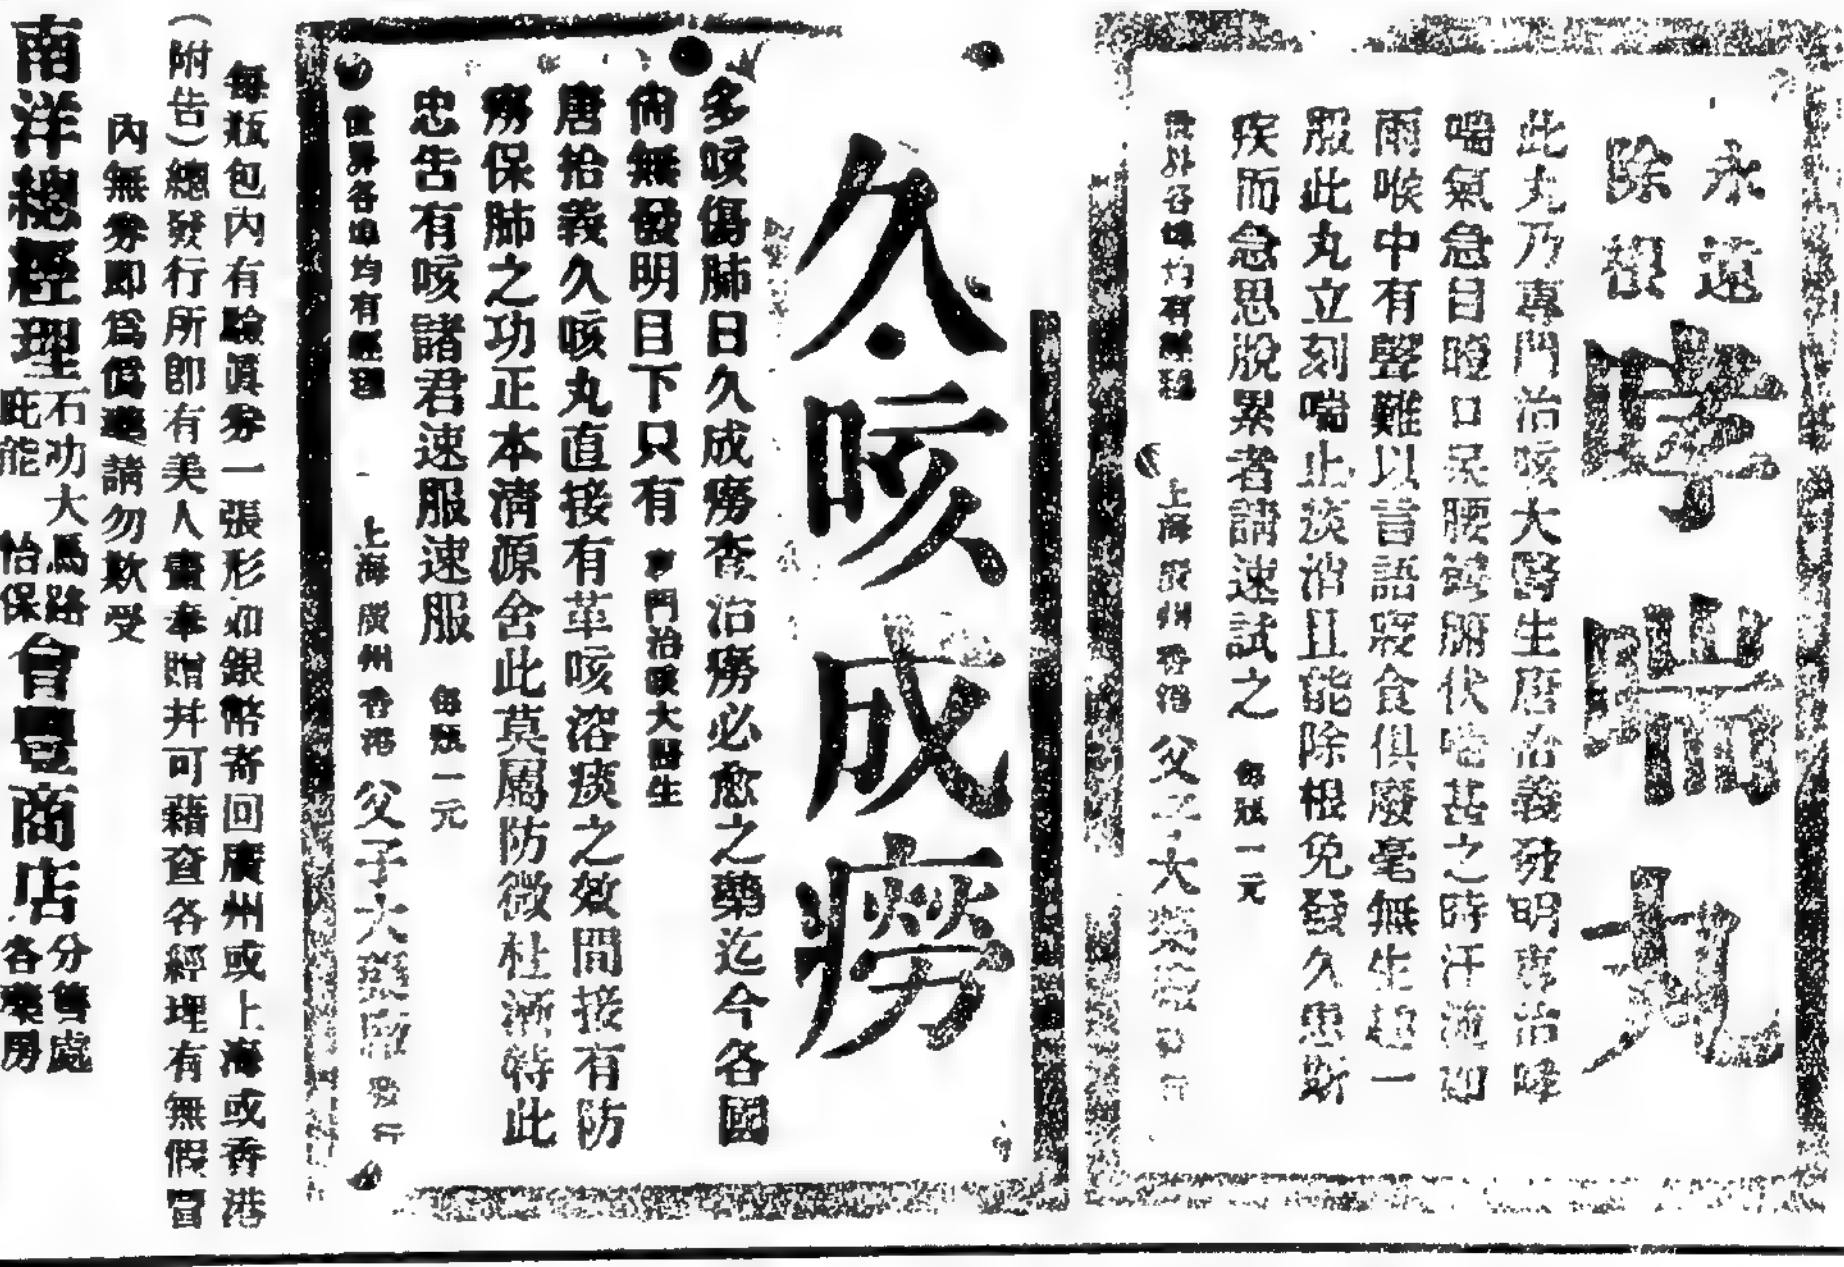 永遠
除根
哮喘丸
此丸乃專門治咳大醫生唐治義發明專治哮
喘氣急目瞪口呆腰彎脚伏咯甚之時汗流如
雨喉中有聲難以言語寢食俱廢毫無生趣一
服此丸立刻喘止淡消且能除根免發久患斯
疾而急思脫累者請速試之 每瓶一元
世界各埠均有經理 上海廣州香港 父子大藥房發行
久咳成癆
多咳傷肺日久成癆查治癆必愈之藥迄今各國
尙無發明目下只有 專門治咳大醫生
唐拾義久咳丸直接有革咳溶痰之效間接有防
癆保肺之功正本淸源舍此莫屬防微杜漸特此
忠告有咳諸君速服速服 每瓶一元
世界各埠均有經理 上海廣州香港 父子大藥房發行
每瓶包内有驗眞劵一張形如銀幣寄回廣州或上海或香港
(附告)總發行所卽有美人畫奉贈幷可藉查各經理有無假冒
内無劵卽爲僞藥請勿欺受
南洋總經理
石功大馬路
庇能 怡保
會豐商店
分售處
各藥房